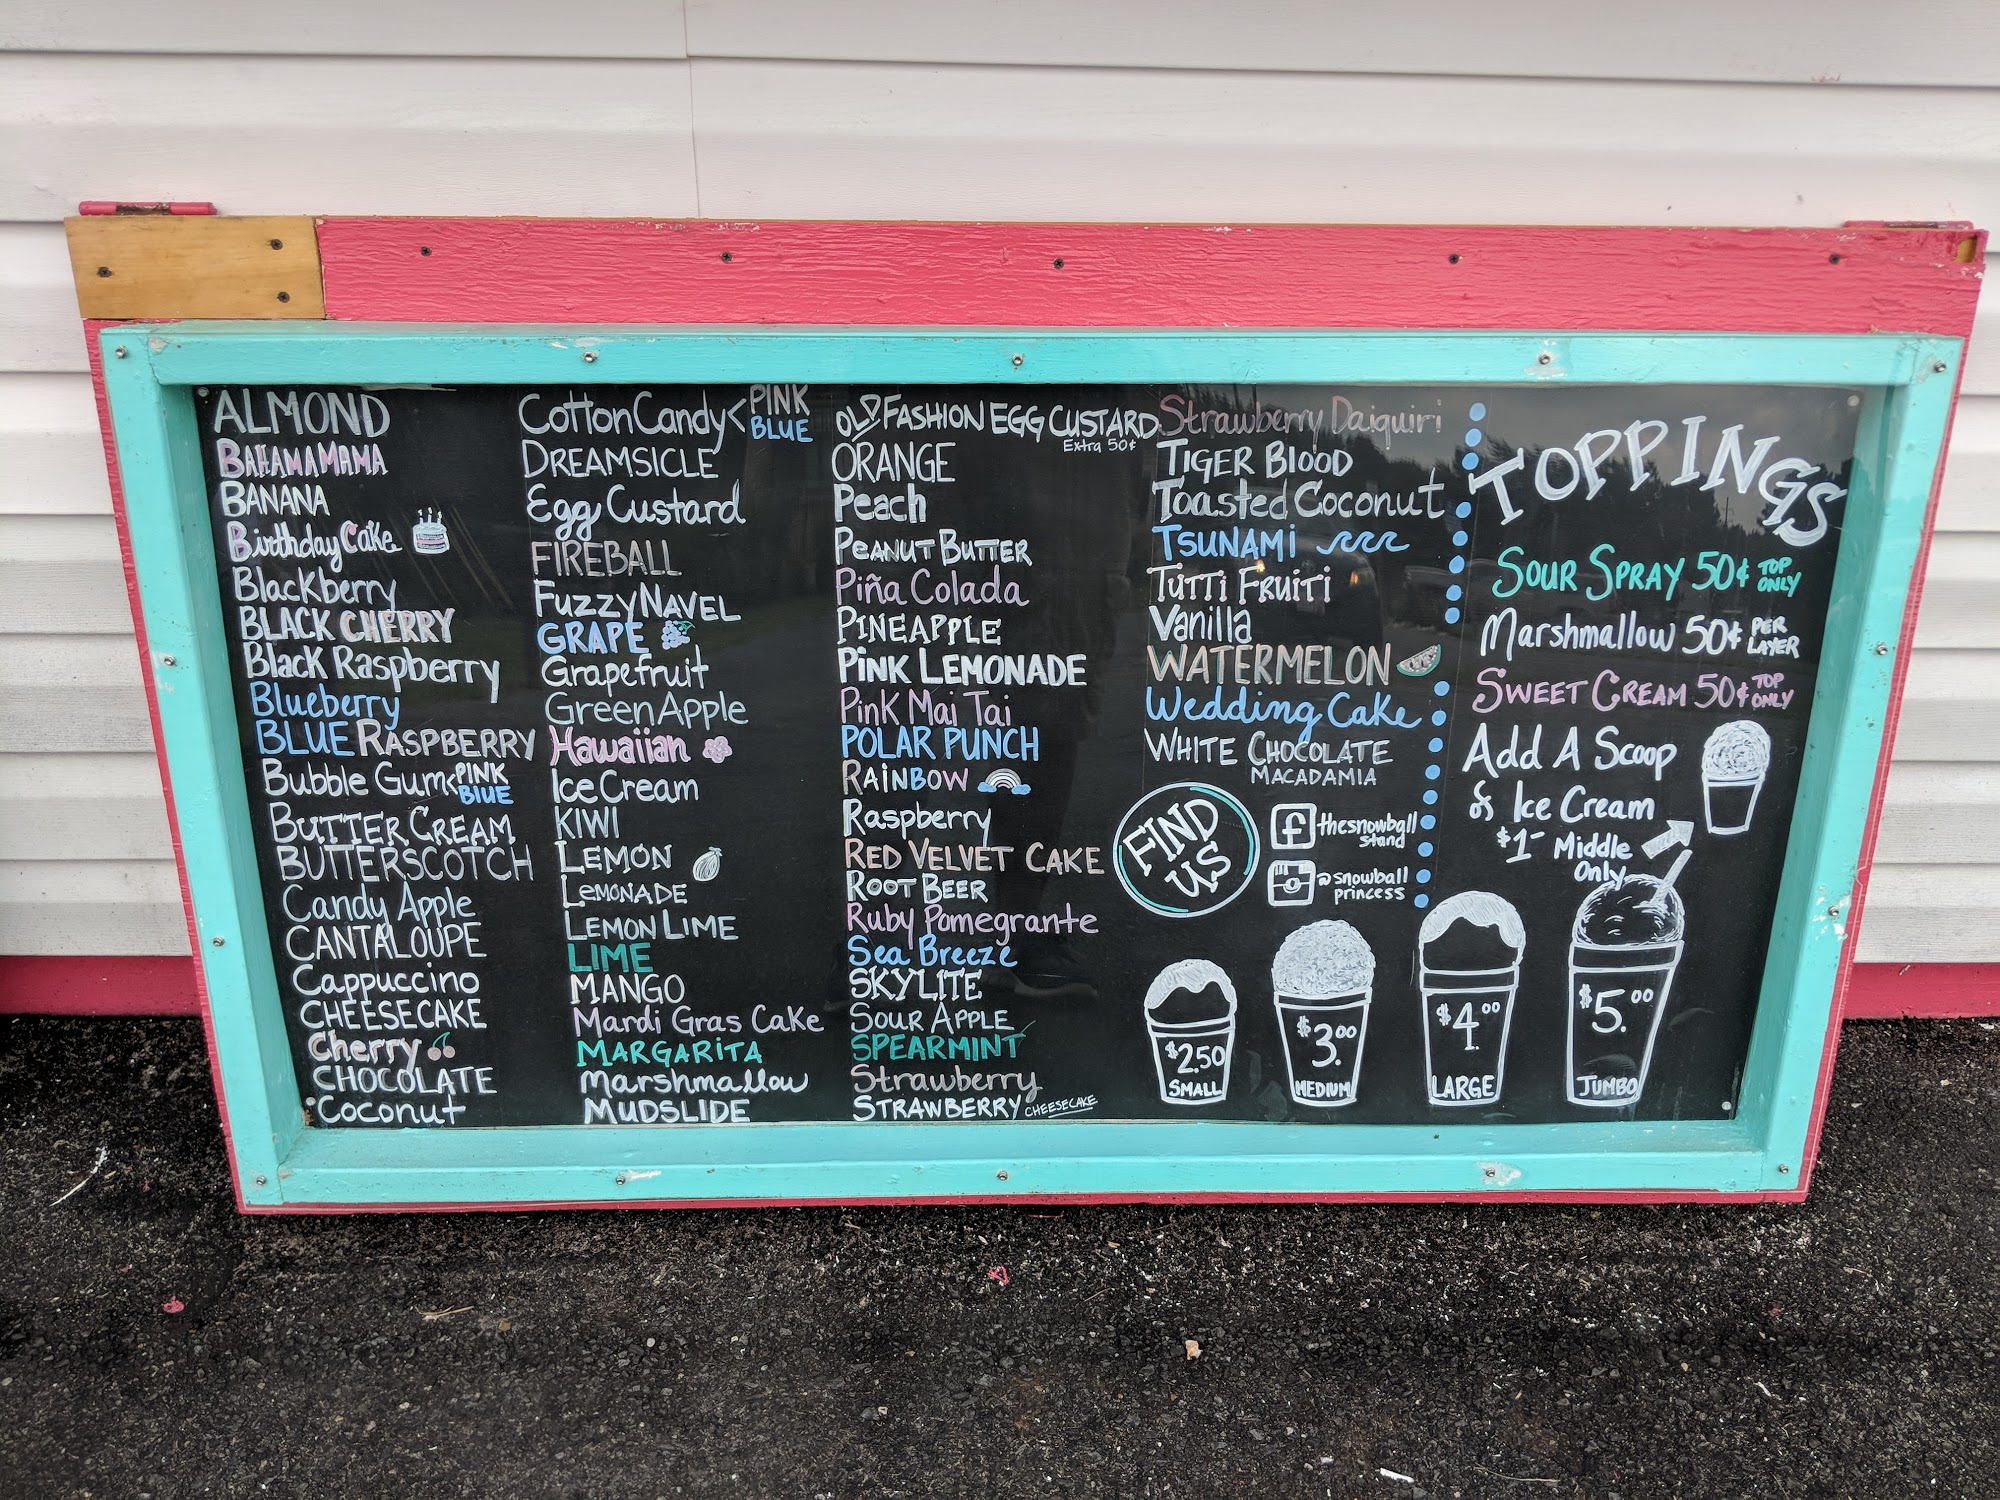 ALMOND
BAHAMA MAMA
BANANA
Birthday Cake
Blackberry
BLACK CHERRY
Black Raspberry
Blueberry
BLUE RASPBERRY
Bubble Gum < PINK
BLUE
BUTTER CREAM
BUTTERSCOTCH
Candy Apple
CANTALOUPE
Cappuccino
CHEESECAKE
Cherry
CHOCOLATE
Coconut
Cotton Candy < PINK
BLUE
DREAMSICLE
Egg Custard
FIREBALL
FUZZY NAVEL
GRAPE
Grapefruit
Green Apple
Hawaiian
Ice Cream
KIWI
LEMON
LEMONADE
LEMON LIME
LIME
MANGO
Mardi Gras Cake
MARGARITA
Marshmallow
MUDSLIDE
OLD FASHION EGG CUSTARD
Extra 50¢
ORANGE
Peach
PEANUT BUTTER
Piña Colada
PINEAPPLE
PINK LEMONADE
Pink Mai Tai
POLAR PUNCH
RAINBOW
Raspberry
RED VELVET CAKE
ROOT BEER
Ruby Pomegrante
Sea Breeze
SKYLITE
SOUR APPLE
SPEARMINT
Strawberry
STRAWBERRY CHEESECAKE
Strawberry Daiquiri
TIGER BLOOD
Toasted Coconut
TSUNAMI
TUTTI FRUITI
Vanilla
WATERMELON
Wedding Cake
WHITE CHOCOLATE
MACADAMIA
FIND
US
f thesnowball
stand
@snowball
princess
TOPPINGS
SOUR SPRAY 50¢ TOP
ONLY
Marshmallow 50¢ PER
LAYER
SWEET CREAM 50¢ TOP
ONLY
Add A Scoop
of Ice Cream
$1- Middle
Only
$2.50
SMALL
$3.00
MEDIUM
$4.00
LARGE
$5.00
JUMBO